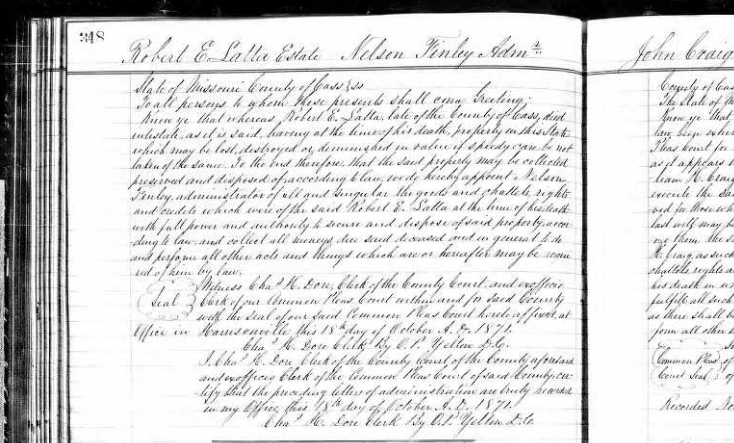 348
Robert E. Latta Estate Nelson Finley Admr.
State of Missouri County of Cass } ss
To all persons to whom these presents shall come Greeting;
Know ye that whereas, Robert E. Latta, late of the County of Cass, died
intestate, as it is said, having at the time of his death, property in this State
which may be lost, destroyed or diminished in value if speedy care be not
taken of the same. To the end therefore, that the said property may be collected
preserved and disposed of according to law, we do hereby appoint Nelson
Finley, administrator of all and singular the goods and chattels, rights
and credits which were of the said Robert E. Latta at the time of his death
with full power and authority to secure and dispose of said property, accor
ding to law, and collect all moneys, due said deceased and in general to do
and perform all other acts and things which are or hereafter may be requi
red of them by law.
Witness Chas. H. Dore, Clerk of the County Court, and exofficio
Seal
Clerk of our Common Pleas Court within and for said County
with the seal of our said Common Pleas Court hereto affixed, at
Office in Harrisonville this 18th day of October A.D. 1871.
Chas. H. Dore Clerk By O.P. D.C.
I, Chas. H. Dore Clerk of the County Court of the County aforesaid
and exofficio Clerk of the Common Pleas Court of said County, cer
tify that the preceding letters of administration are truly recorded
in my Office this 18th day of October, A.D. 1871.
Chas. H. Dore Clerk By O.P. D.C.
John Craig
County of Cass
The State of
Know ye that
Pleas Court for
as it appears
execute the
ved for those
last will may be
H. Craig, as such
chattels rights
his death in
fulfill all such
as there shall be
form all other
Common Pleas
Court Seal
Recorded